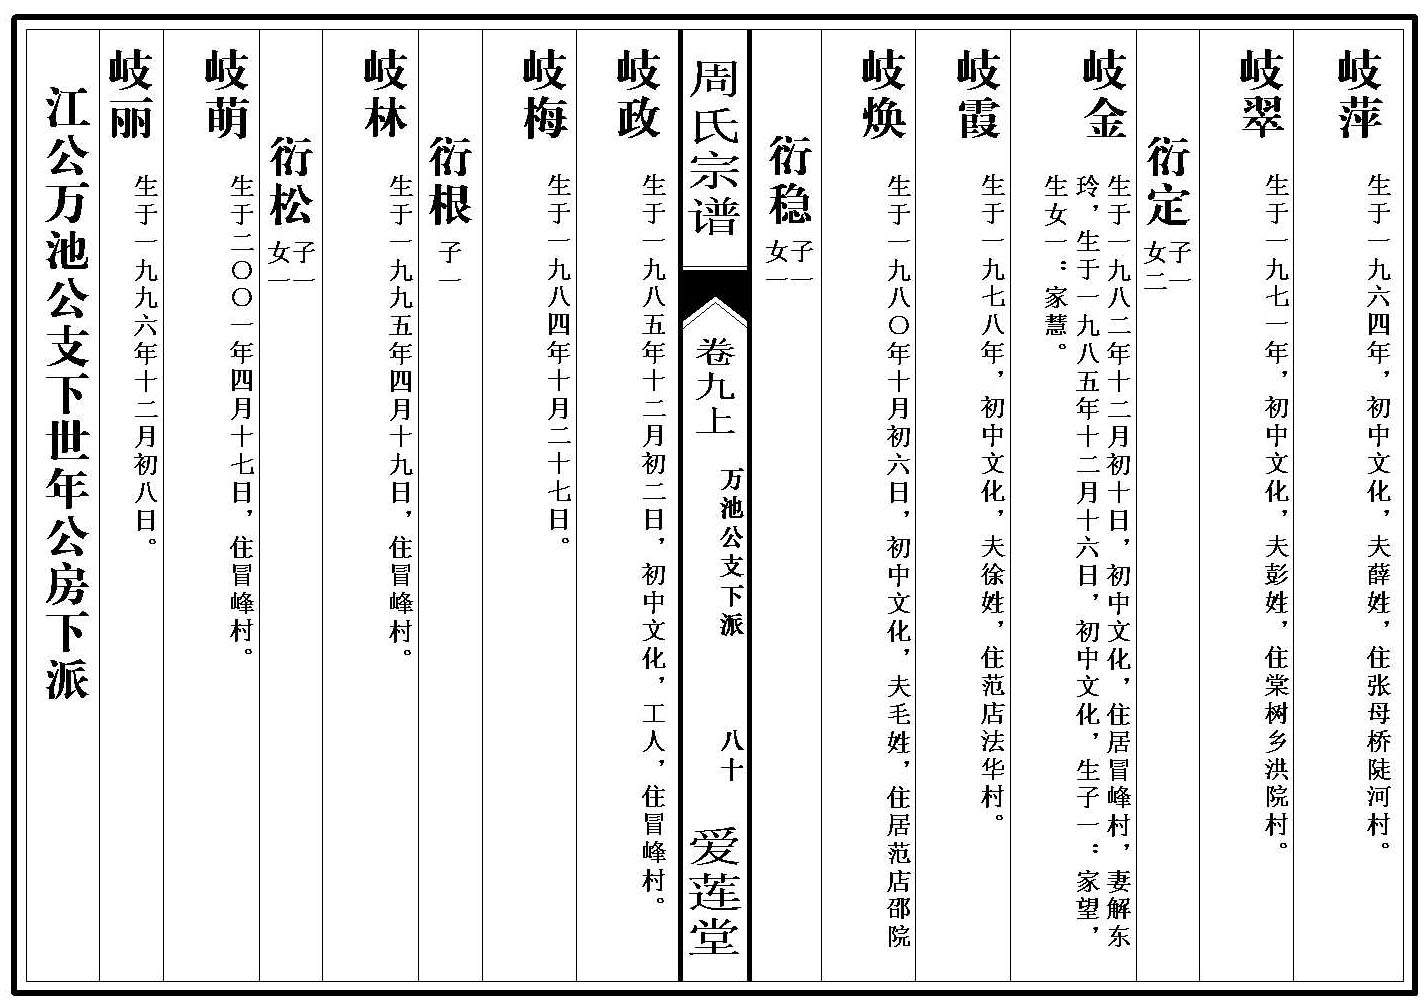 岐萍
生于一九六四年，初中文化，夫薛姓，住张母桥陡河村。
岐翠
生于一九七一年，初中文化，夫彭姓，住棠树乡洪院村。
衍定
子一
女二
岐金
生于一九八二年十二月初十日，初中文化，住居冒峰村，妻解东
玲，生于一九八五年十二月十六日，初中文化，生子一：家望，
生女一：家慧。
岐霞
生于一九七八年，初中文化，夫徐姓，住范店法华村。
岐焕
生于一九八〇年十月初六日，初中文化，夫毛姓，住居范店邵院
衍稳
子一
女一
周氏宗谱
卷九上
万池公支下派
八十
爱莲堂
岐政
生于一九八五年十二月初二日，初中文化，工人，住冒峰村。
岐梅
生于一九八四年十月二十七日。
衍根
子一
岐林
生于一九九五年四月十九日，住冒峰村。
衍松
子一
女一
岐萌
生于二〇〇一年四月十七日，住冒峰村。
岐丽
生于一九九六年十二月初八日。
江公万池公支下世年公房下派